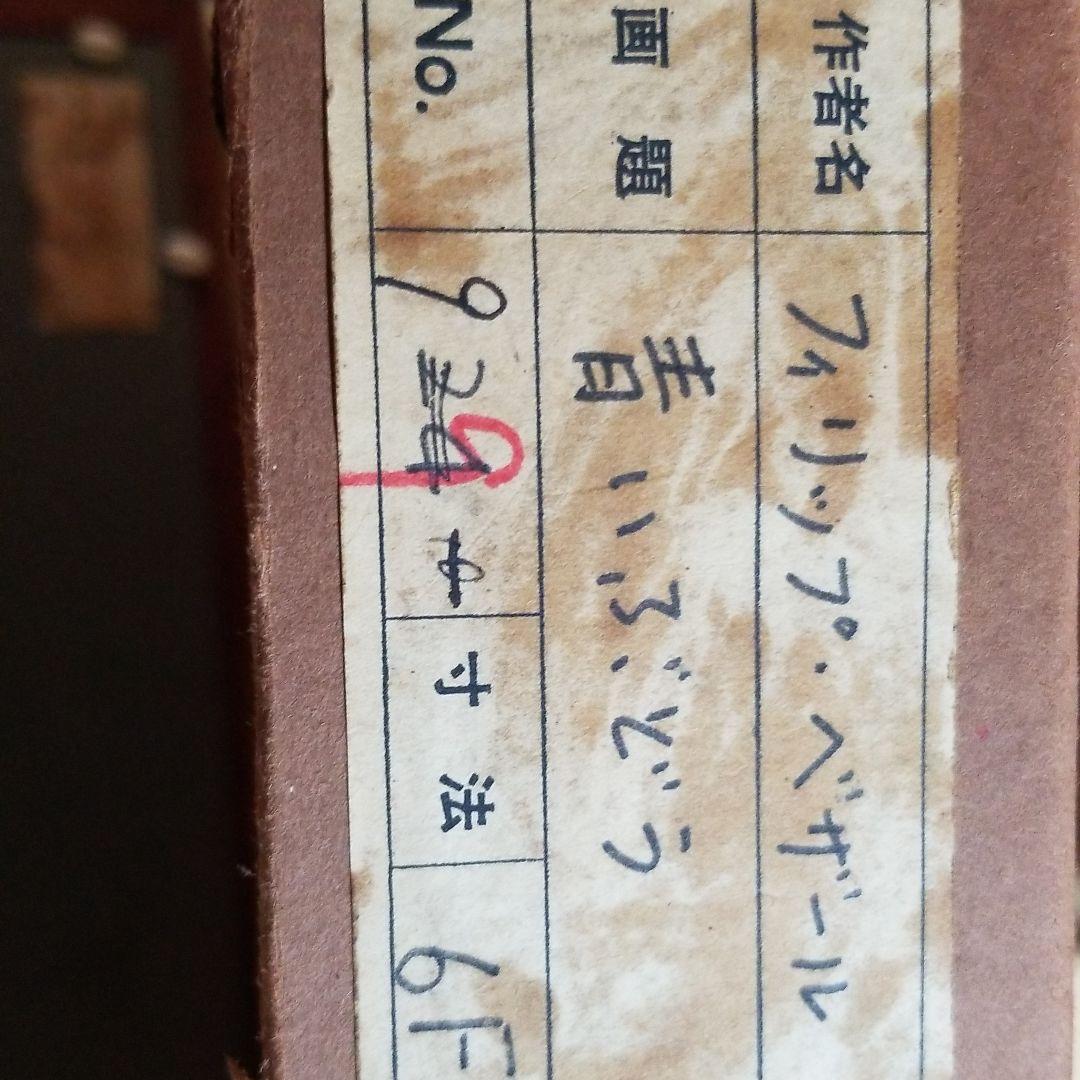 作者名 フィリップ・ベザール
画題 青いぶどう
No. 9 9 寸法 6F